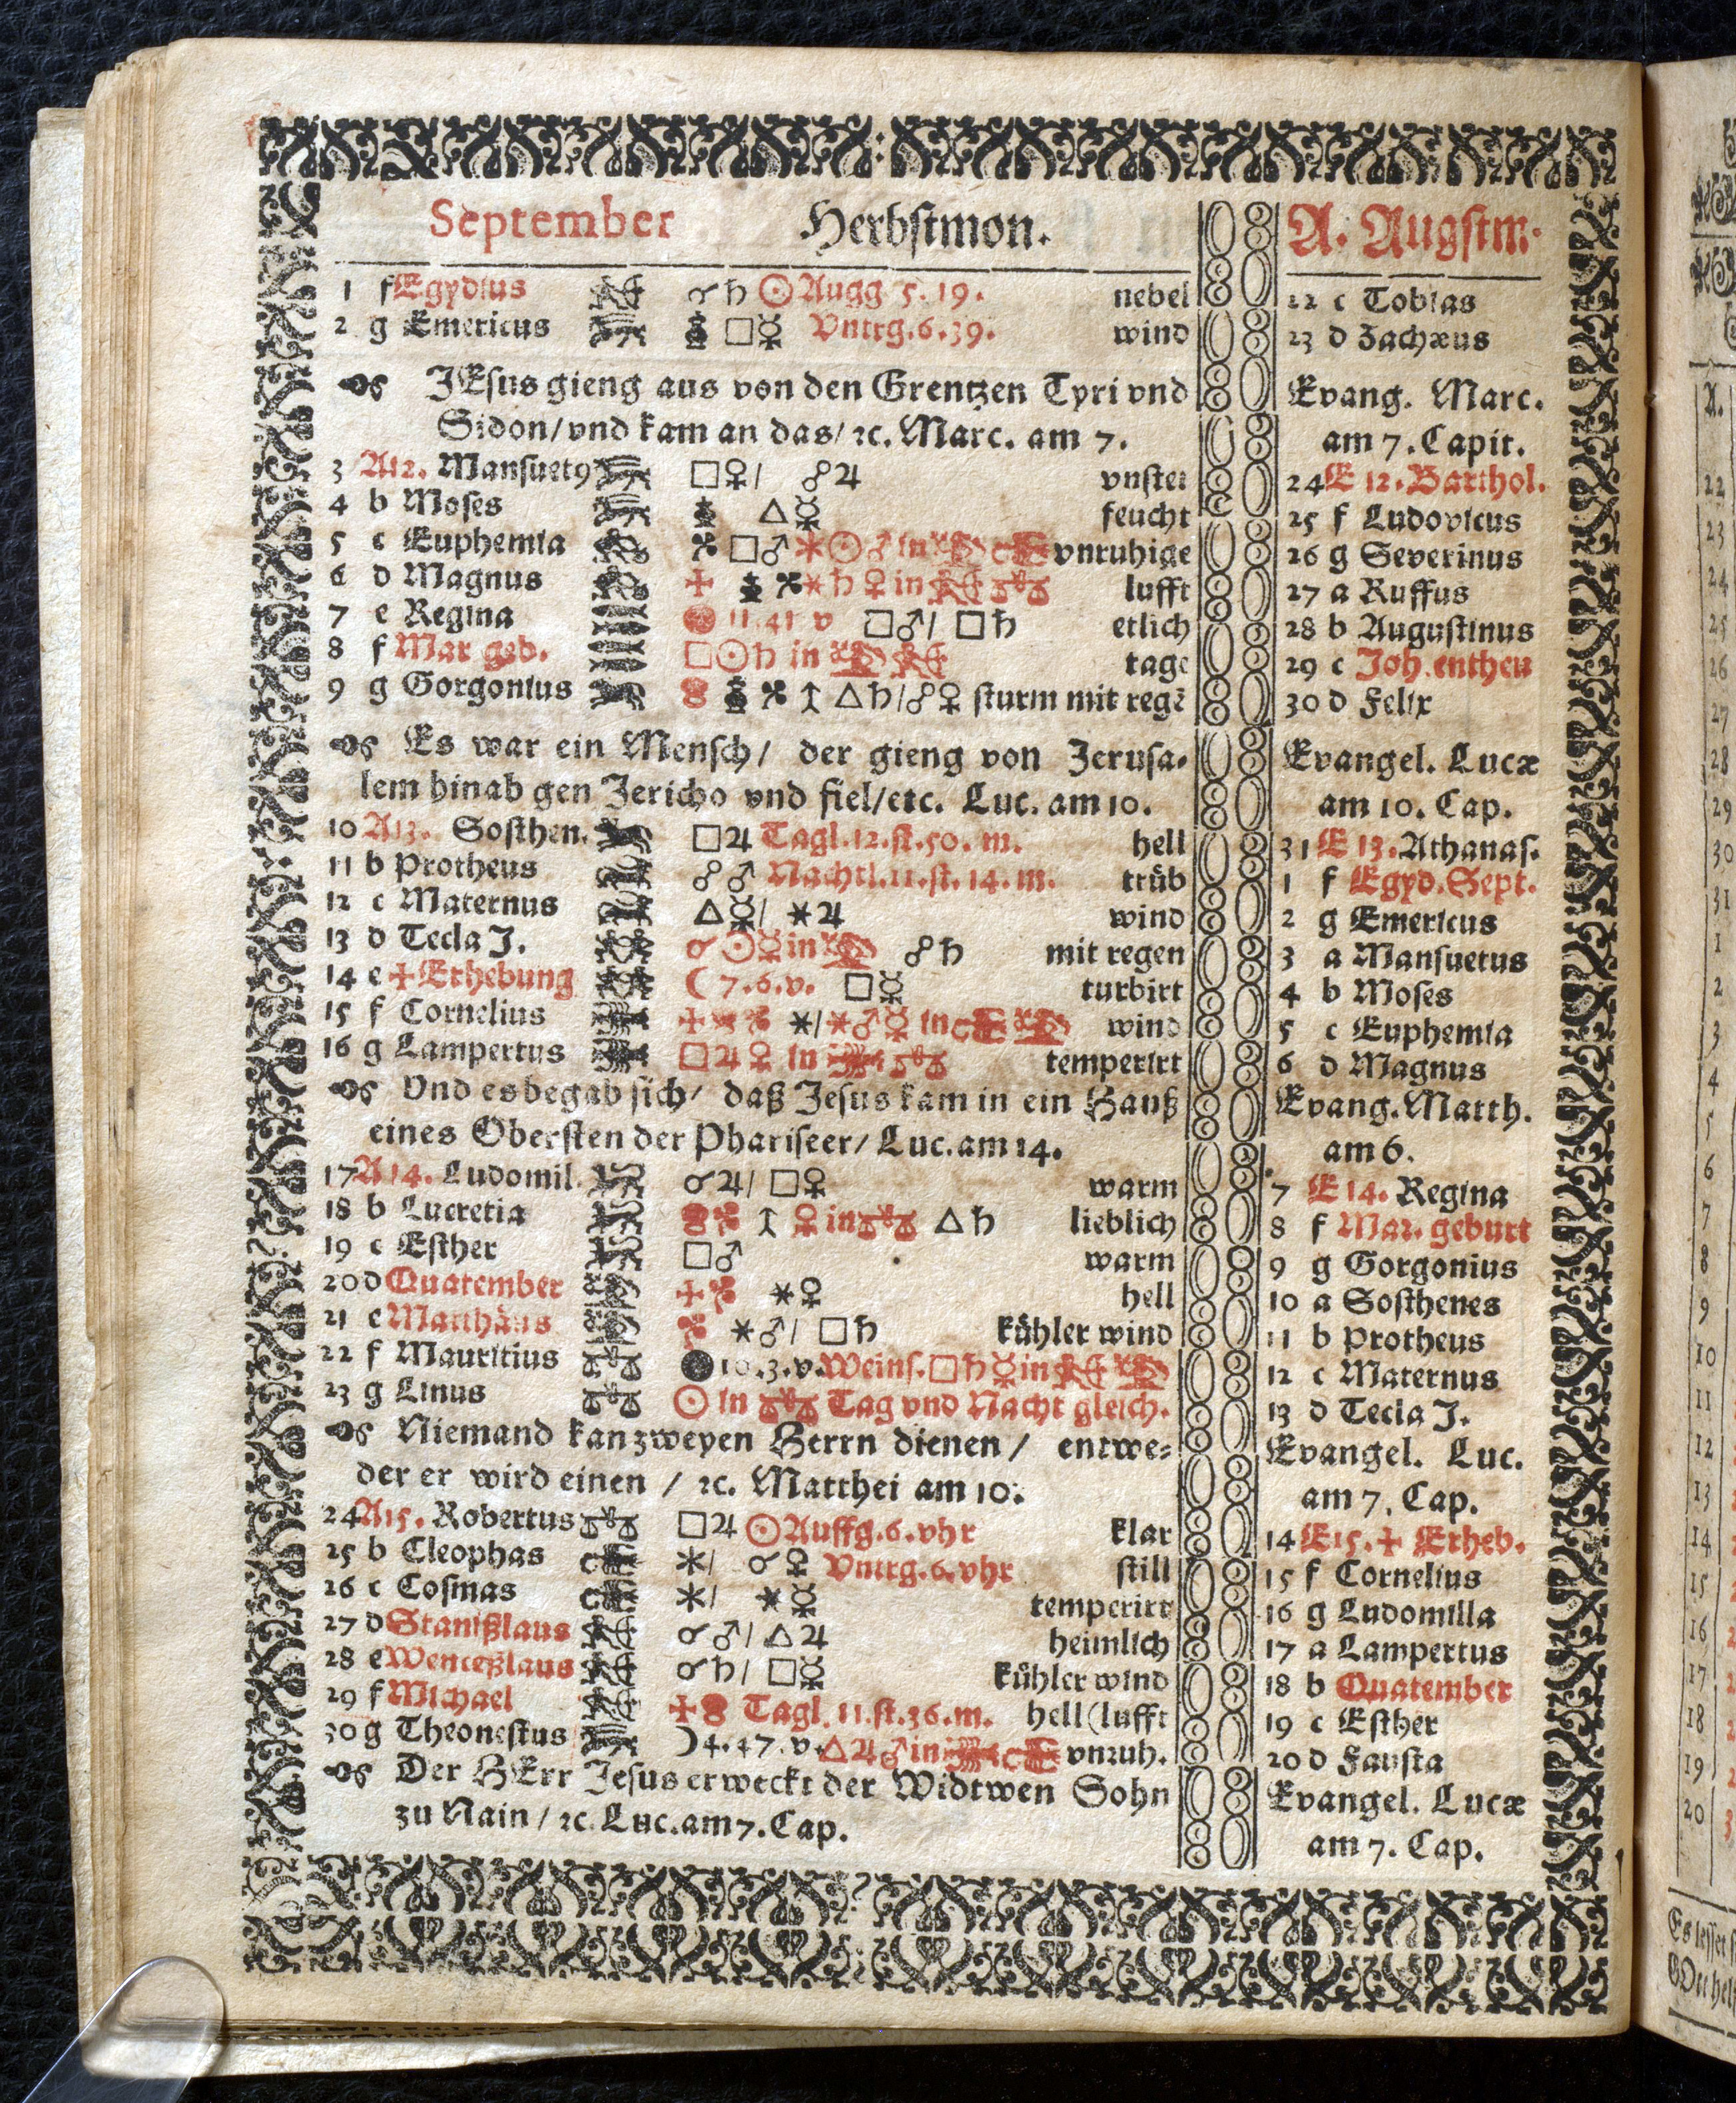 September Herbstmon.
1 f Egydius ☌ ♄ ☉ Augg 5. 19. nebel
2 g Emericus □ ☿ Vntrg. 6. 39. wind
JEsus gieng aus von den Grentzen Tyri vnd
Sidon/ vnd kam an das/ ꝛc. Marc. am 7.
3 A 12. Mansuetꝰ □ ♀/ ☍ ♃ vnstet
4 b Moses △ ☿ feucht
5 c Euphemia □ ♂ ⚹ ☉ ♂ in vnruhige
6 d Magnus ⚹ ♄ ♀ in lufft
7 e Regina 11. 41 v □ ♂/ □ ♄ etlich
8 f Mar geb. □ ☉ ♄ in tage
9 g Gorgonius △ ♄/ ☍ ♀ sturm mit regẽ
Es war ein Mensch/ der gieng von Jerusa-
lem hinab gen Jericho vnd fiel/ etc. Luc. am 10.
10 A 13. Sosthen. □ ♃ Tagl. 12. st. 50. m. hell
11 b Protheus ☍ ♂ Nachtl. 11. st. 14. m. trüb
12 c Maternus △ ☿/ ⚹ ♃ wind
13 d Tecla J. ☌ ☉ ☿ in ☍ ♄ mit regen
14 e ✠ Erhebung ☾ 7. 6. v. □ ☿ turbirt
15 f Cornelius ⚹/ ⚹ ♂ ☿ in wind
16 g Lampertus □ ♃ ♀ in temperirt
Vnd es begab sich/ daß Jesus kam in ein Hauß
eines Obersten der Phariseer/ Luc. am 14.
17 A 14. Ludomil. ☌ ♃/ □ ♀ warm
18 b Lucretia ♀ in △ ♄ lieblich
19 c Esther □ ♂ warm
20 d Quatember ⚹ ♀ hell
21 e Matthäus ⚹ ♂/ □ ♄ kühler wind
22 f Mauritius ● 10. 3. v. Weins. □ ♄ ☿ in
23 g Linus ☉ in Tag vnd Nacht gleich.
Niemand kan zweyen Herrn dienen/ entwe-
der er wird einen / ꝛc. Matthei am 10.
24 A 15. Robertus □ ♃ ☉ Auffg. 6. vhr klar
25 b Cleophas ⚹/ ☌ ♀ Vntrg. 6. vhr still
26 c Cosmas ⚹/ ⚹ ☿ temperirt
27 d Stanißlaus ☌ ♂/ △ ♃ heimlich
28 e Wenceßlaus ☌ ♄/ □ ☿ kühler wind
29 f Michael Tagl. 11. st. 36. m. hell (lufft
30 g Theonestus ☽ 4. 47. v. △ ♃ ♂ in vnruh.
Der HErr Jesus erweckt der Widtwen Sohn
zu Nain / ꝛc. Luc. am 7. Cap.
A. Augstm.
22 c Tobias
23 d Zachæus
Evang. Marc.
am 7. Capit.
24 E 12. Barthol.
25 f Ludovicus
26 g Severinus
27 a Ruffus
28 b Augustinus
29 c Joh. entheu
30 d Felix
Evangel. Lucæ
am 10. Cap.
31 E 13. Athanas.
1 f Egyd. Sept.
2 g Emericus
3 a Mansuetus
4 b Moses
5 c Euphemia
6 d Magnus
Evang. Matth.
am 6.
7 E 14. Regina
8 f Mar. geburt
9 g Gorgonius
10 a Sosthenes
11 b Protheus
12 c Maternus
13 d Tecla J.
Evangel. Luc.
am 7. Cap.
14 E 15. ✠ Erheb.
15 f Cornelius
16 g Ludomilla
17 a Lampertus
18 b Quatember
19 c Esther
20 d Fausta
Evangel. Lucæ
am 7. Cap.